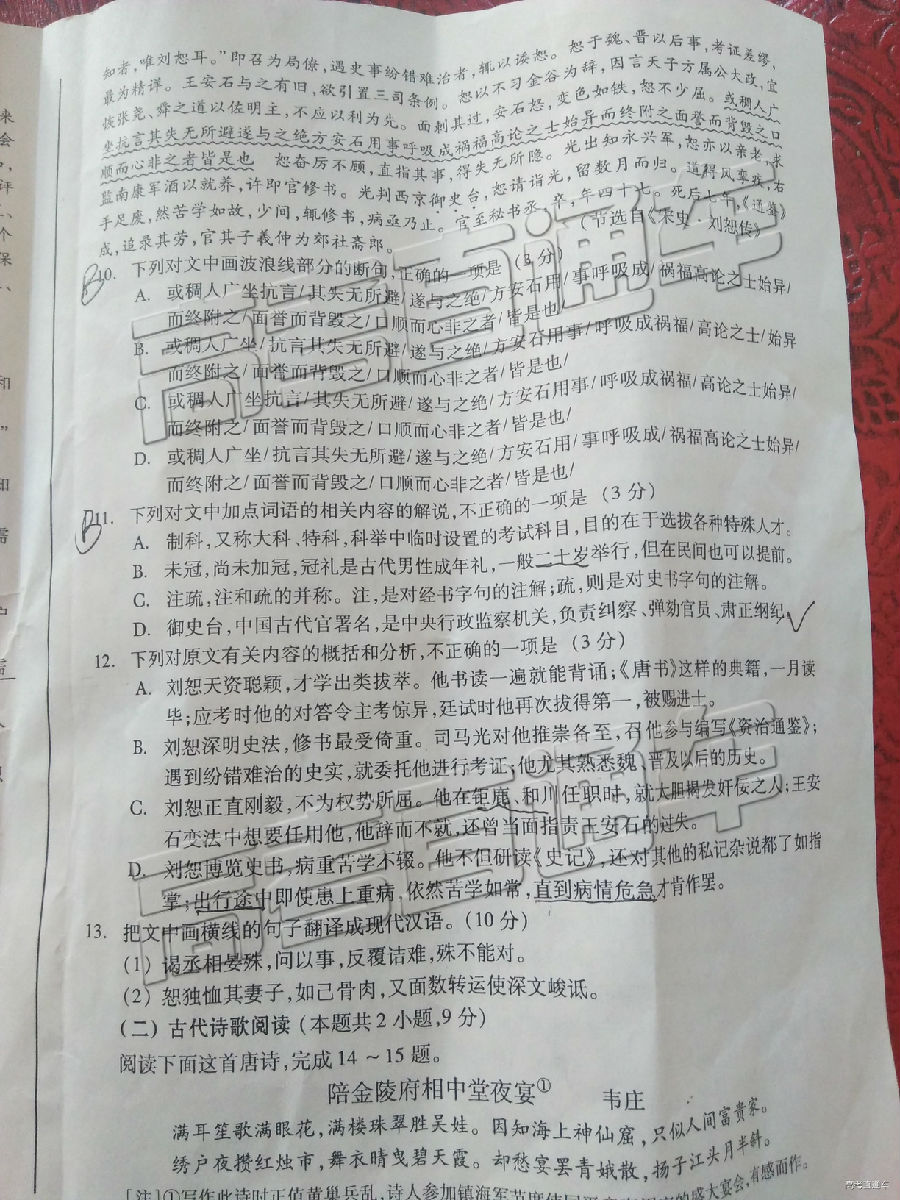 知者,唯刘恕耳。”即召为局僚,遇史事纷错难治者,辄以诿恕。恕于魏、晋以后事,考证差缪,
最为精详。王安石与之有旧,欲引置三司条例。恕以不习金谷为辞,因言天子方属公大政,宜
恢张尧、舜之道以佐明主,不应以利为先。面刺其过,安石怒,变色如铁,恕不少屈。或稠人广
坐抗言其失无所避遂与之绝方安石用事呼吸成祸福高论之士始异而终附之面誉而背毁之口
顺而心非之者皆是也 恕奋厉不顾,直指其事,得失无所隐。光出知永兴军,恕亦以亲老,求
监南康军酒以就养,许即官修书。光判西京御史台,恕请诣光,留数月而归。道得风挛疾,右
手足废,然苦学如故,少间,辄修书,病亟乃止。官至秘书丞,卒,年四十七。死后七年,《通鉴》
成,追录其劳,官其子羲仲为郊社斋郎。 (节选自《宋史·刘恕传》)
B10. 下列对文中画波浪线部分的断句,正确的一项是 (3 分)
A. 或稠人广坐抗言/其失无所避/遂与之绝/方安石用/事呼吸成/祸福高论之士始异/
而终附之/面誉而背毁之/口顺而心非之者/皆是也/
B. 或稠人广坐/抗言其失无所避/遂与之绝/方安石用事/呼吸成祸福/高论之士/始异
而终附之/面誉而背毁之/口顺而心非之者/皆是也/
C. 或稠人广坐抗言/其失无所避/遂与之绝/方安石用事/呼吸成祸福/高论之士始异/
而终附之/面誉而背毁之/口顺而心非之者/皆是也/
D. 或稠人广坐/抗言其失无所避/遂与之绝/方安石用/事呼吸成/祸福高论之士始异/
而终附之/面誉而背毁之/口顺而心非之者/皆是也/
B11. 下列对文中加点词语的相关内容的解说,不正确的一项是 (3 分)
A. 制科,又称大科、特科,科举中临时设置的考试科目,目的在于选拔各种特殊人才。
B. 未冠,尚未加冠,冠礼是古代男性成年礼,一般二十岁举行,但在民间也可以提前。
C. 注疏,注和疏的并称。注,是对经书字句的注解;疏,则是对史书字句的注解。
D. 御史台,中国古代官署名,是中央行政监察机关,负责纠察、弹劾官员、肃正纲纪。
12. 下列对原文有关内容的概括和分析,不正确的一项是 (3 分)
A. 刘恕天资聪颖,才学出类拔萃。他书读一遍就能背诵;《唐书》这样的典籍,一月读
毕;应考时他的对答令主考惊异,廷试时他再次拔得第一,被赐进士。
B. 刘恕深明史法,修书最受倚重。司马光对他推崇备至,召他参与编写《资治通鉴》;
遇到纷错难治的史实,就委托他进行考证;他尤其熟悉魏、晋及以后的历史。
C. 刘恕正直刚毅,不为权势所屈。他在钜鹿、和川任职时,就大胆揭发奸佞之人;王安
石变法中想要任用他,他辞而不就,还曾当面指责王安石的过失。
D. 刘恕博览史书,病重苦学不辍。他不但研读《史记》,还对其他的私记杂说都了如指
掌;出行途中即使患上重病,依然苦学如常,直到病情危急才肯作罢。
13. 把文中画横线的句子翻译成现代汉语。(10 分)
(1) 谒丞相晏殊,问以事,反覆诘难,殊不能对。
(2) 恕独恤其妻子,如己骨肉,又面数转运使深文峻诋。
(二) 古代诗歌阅读 (本题共 2 小题,9 分)
阅读下面这首唐诗,完成 14 ~ 15 题。
陪金陵府相中堂夜宴① 韦庄
满耳笙歌满眼花,满楼珠翠胜吴娃。因知海上神仙窟,只似人间富贵家。
绣户夜攒红烛市,舞衣晴曳碧天霞。却愁宴罢青娥散,扬子江头月半斜。
[注]①写作此诗时正值黄巢兵乱,诗人参加镇海军节度使
的盛大宴会,有感而作。